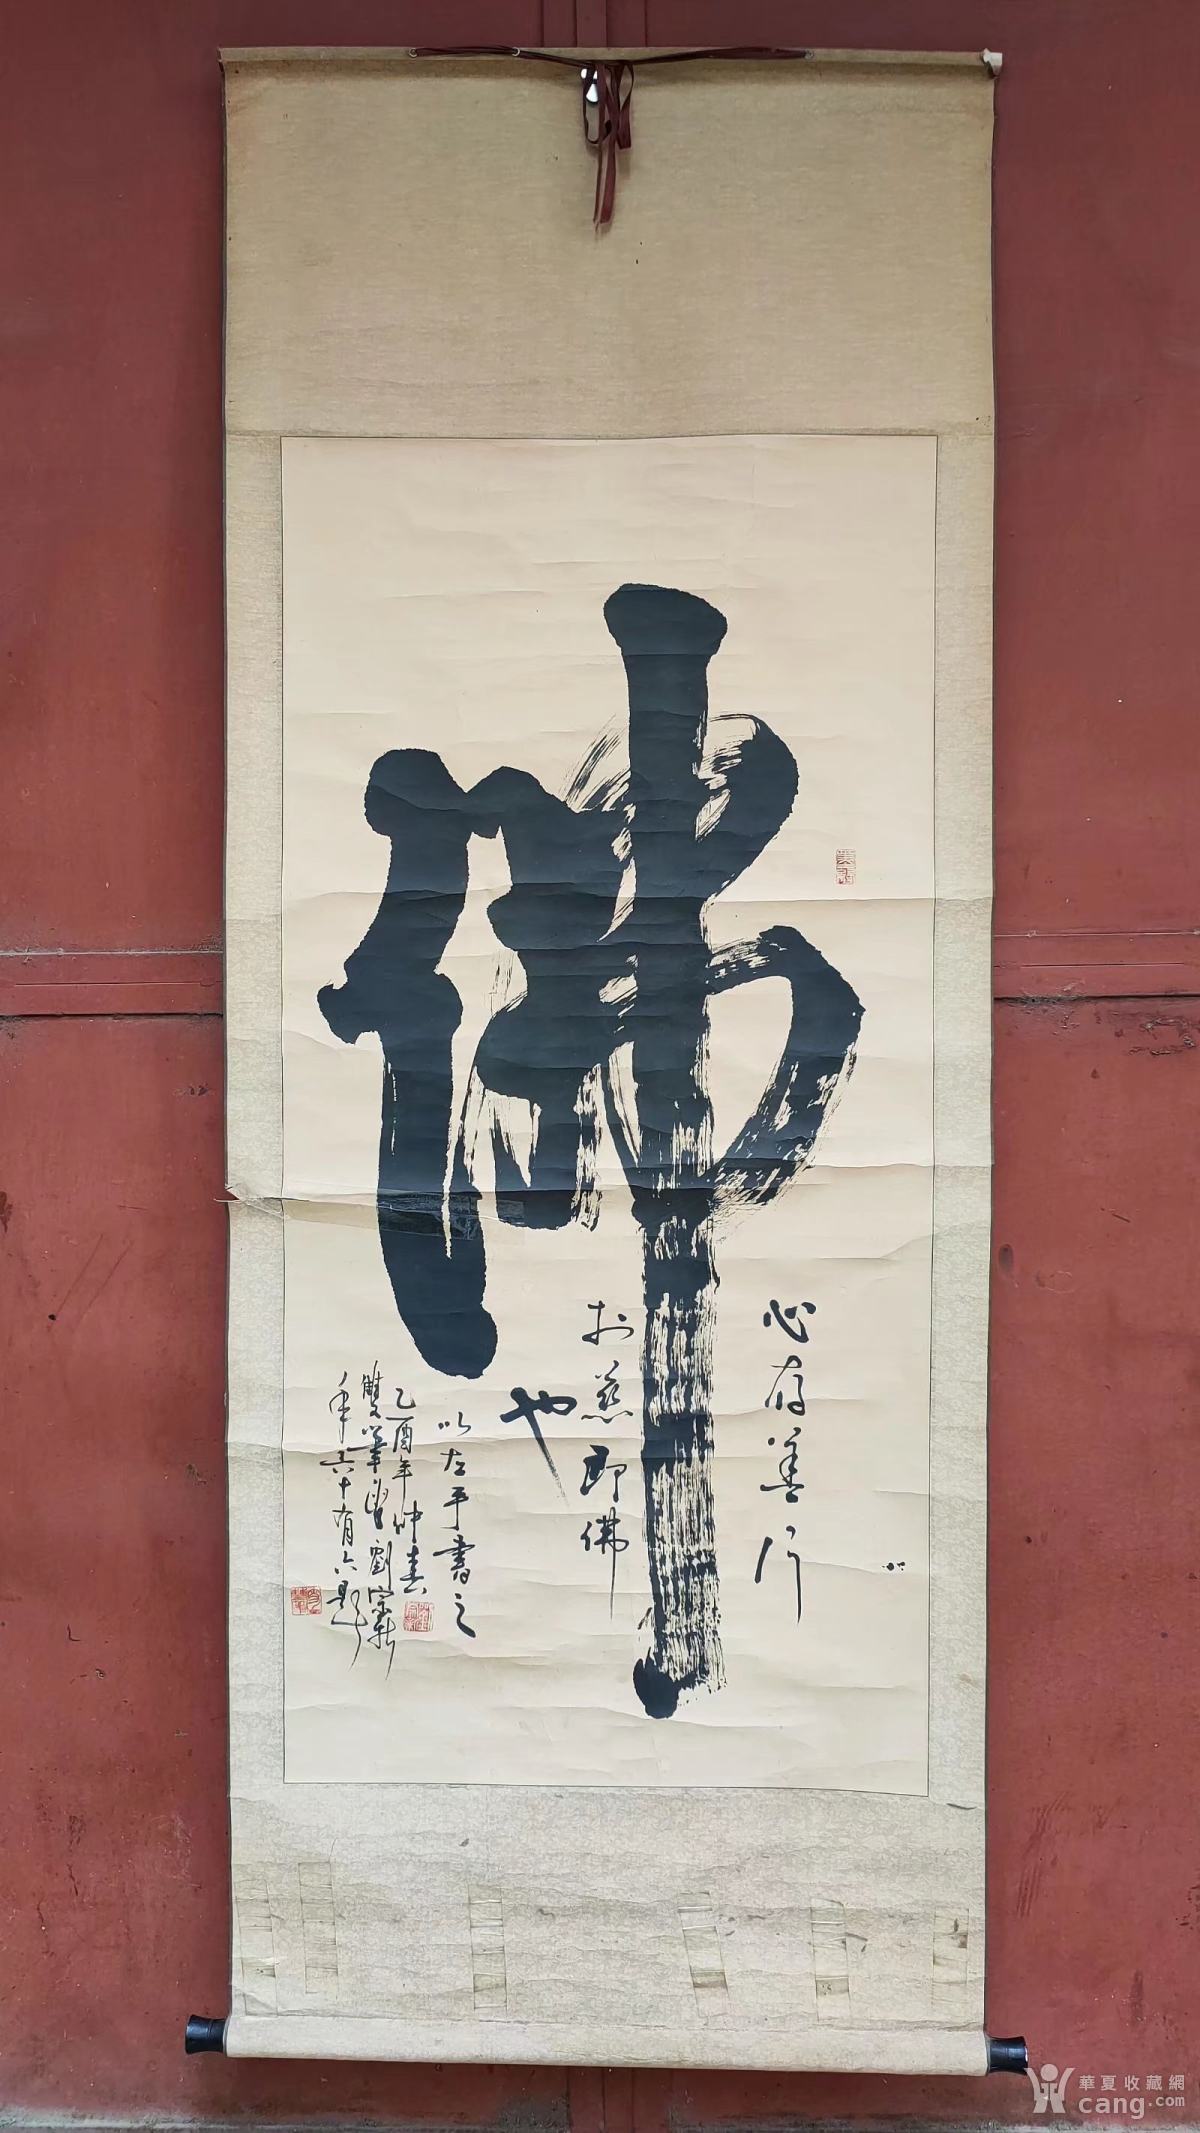 佛
心存善行
於慈即佛
也
以左手書之
乙酉年仲春
雙筆叟劉宗彬
年六十有六題
華夏收藏網
cang.com